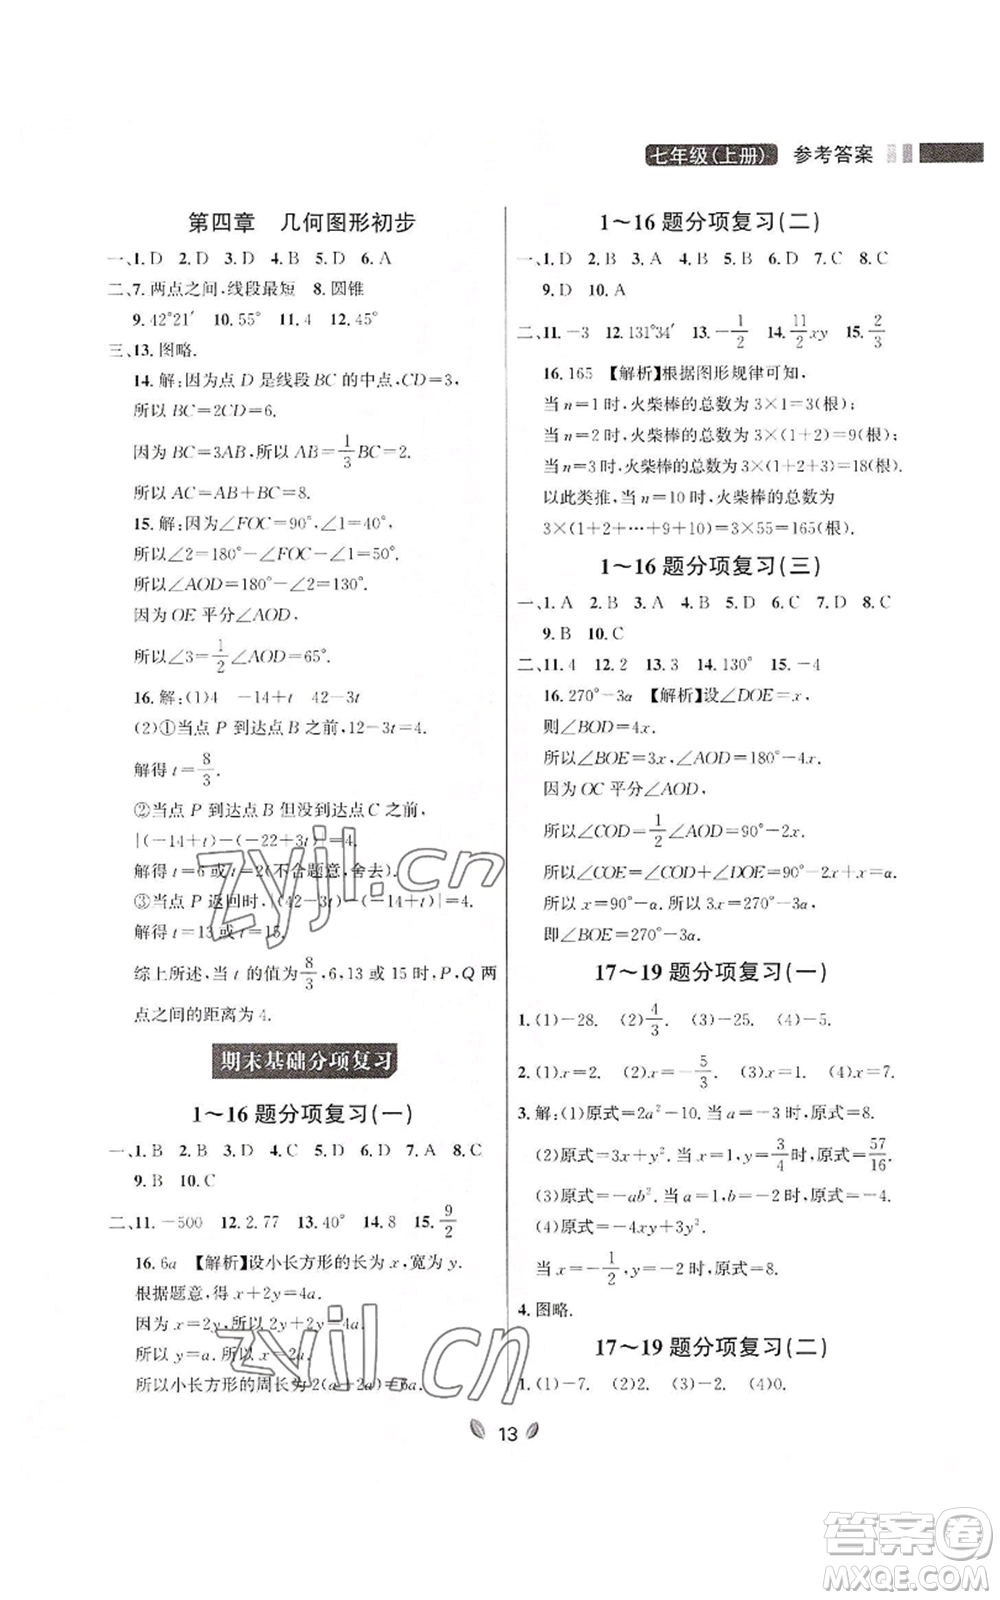 七年级(上册) 参考答案
第四章 几何图形初步
一、1. D 2. D 3. D 4. D 5. D 6. A
二、7. 两点之间,线段最短 8. 圆锥
9. 42°21′ 10. 55° 11. 4 12. 45°
三、13. 图略.
14. 解:因为点 D 是线段 BC 的中点,CD=3,
所以 BC=2CD=6.
因为 BC=3AB,所以 AB=1/3BC=2.
所以 AC=AB+BC=8.
15. 解:因为∠FOC=90°,∠1=40°,
所以∠2=180°-∠FOC-∠1=50°.
所以∠AOD=180°-∠2=130°.
因为 OE 平分∠AOD,
所以∠3=1/2∠AOD=65°.
16. 解:(1)4 -14+t 42-3t
(2)①当点 P 到达点 B 之前,12-3t=4.
解得 t=8/3.
②当点 P 到达点 B 但没到达点 C 之前,
|(-14+t)-(-22+3t)|=4.
解得 t=6 或 t=2(不合题意,舍去).
③当点 P 返回时,|(42-3t)-(-14+t)|=4.
解得 t=13 或 t=15.
综上所述,当 t 的值为8/3,6,13 或 15 时,P,Q 两
点之间的距离为 4.
期末基础分项复习
1~16 题分项复习(一)
一、1. B 2. B 3. D 4. C 5. D 6. D 7. A 8. C
9. B 10. C
二、11. -500 12. 2.77 13. 40° 14. 8 15. 9/2
16. 6a 【解析】设小长方形的长为 x,宽为 y.
根据题意,得 x+2y=4a.
因为 x=2y,所以 2y+2y=4a.
所以 y=a. 所以 x=2a.
所以小长方形的周长为 2(a+2a)=6a.
1~16 题分项复习(二)
一、1. D 2. B 3. A 4. C 5. B 6. D 7. C 8. C
9. D 10. A
二、11. -3 12. 131°34′ 13. -1/2 14. 11/2xy 15. 2/3
16. 165 【解析】根据图形规律可知,
当 n=1 时,火柴棒的总数为 3×1=3(根);
当 n=2 时,火柴棒的总数为 3×(1+2)=9(根);
当 n=3 时,火柴棒的总数为 3×(1+2+3)=18(根).
以此类推,当 n=10 时,火柴棒的总数为
3×(1+2+…+9+10)=3×55=165(根).
1~16 题分项复习(三)
一、1. A 2. B 3. A 4. B 5. D 6. C 7. D 8. C
9. B 10. C
二、11. 4 12. 2 13. 3 14. 130° 15. -4
16. 270°-3α 【解析】设∠DOE=x,
则∠BOD=4x.
所以∠BOE=3x,∠AOD=180°-4x.
因为 OC 平分∠AOD,
所以∠COD=1/2∠AOD=90°-2x.
所以∠COE=∠COD+∠DOE=90°-x=α.
所以 x=90°-α. 所以 3x=270°-3α.
即∠BOE=270°-3α.
17~19 题分项复习(一)
1. (1)-28. (2)4/3. (3)-25. (4)-5.
2. (1)x=2. (2)x=-5/3. (3)x=-1. (4)x=3.
3. 解:(1)原式=2a²-10. 当 a=-3 时,原式=8.
(2)原式=3x+y². 当 x=1,y=3/4时,原式=57/16.
(3)原式=-ab². 当 a=1,b=-2 时,原式=-4.
(4)原式=-4xy+3y².
当 x=-1/2,y=-2 时,原式=8.
4. 图略.
17~19 题分项复习(二)
1. (1)-7. (2)2. (3)-2. (4)0.
13
zyjl.cn
zyjl.cn
答案圈
MXQE.COM